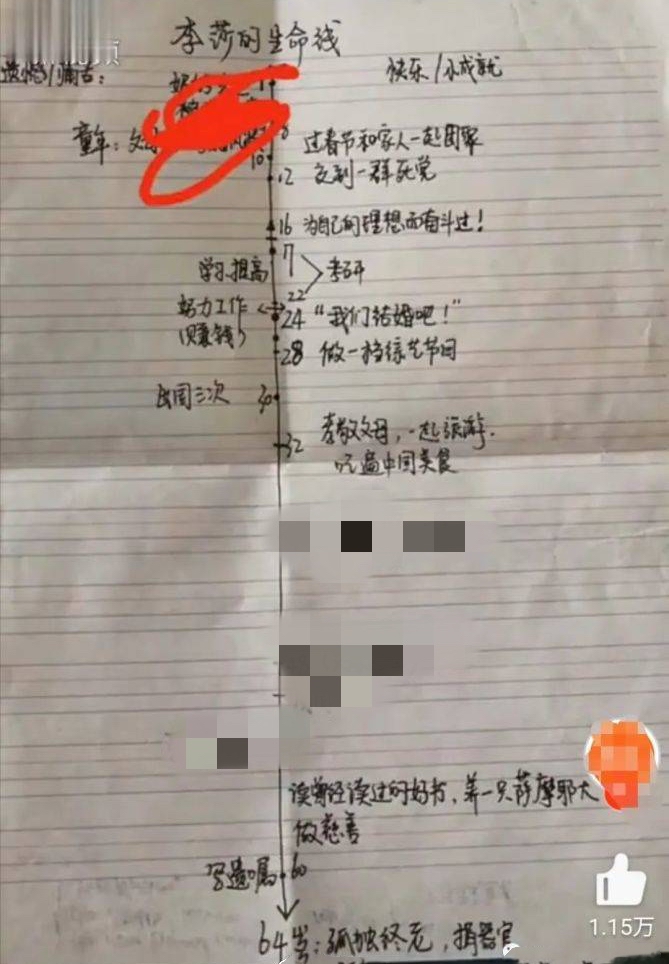 李莎的生命线
遗憾/痛苦：
快乐/小成就
童年：父母
8
过春节和家人一起团聚
10
12 交到一群死党
16 为自己的理想而奋斗过！
学习提高
17
考研
22
努力工作
(赚钱)
24 “我们结婚吧！”
28 做一档综艺节目
出国三次 30
32
孝敬父母，一起旅游.
吃遍中国美食
读曾经读过的好书，养一只萨摩耶犬
做慈善
写遗嘱 60
64岁：孤独终老，捐器官
1.15万